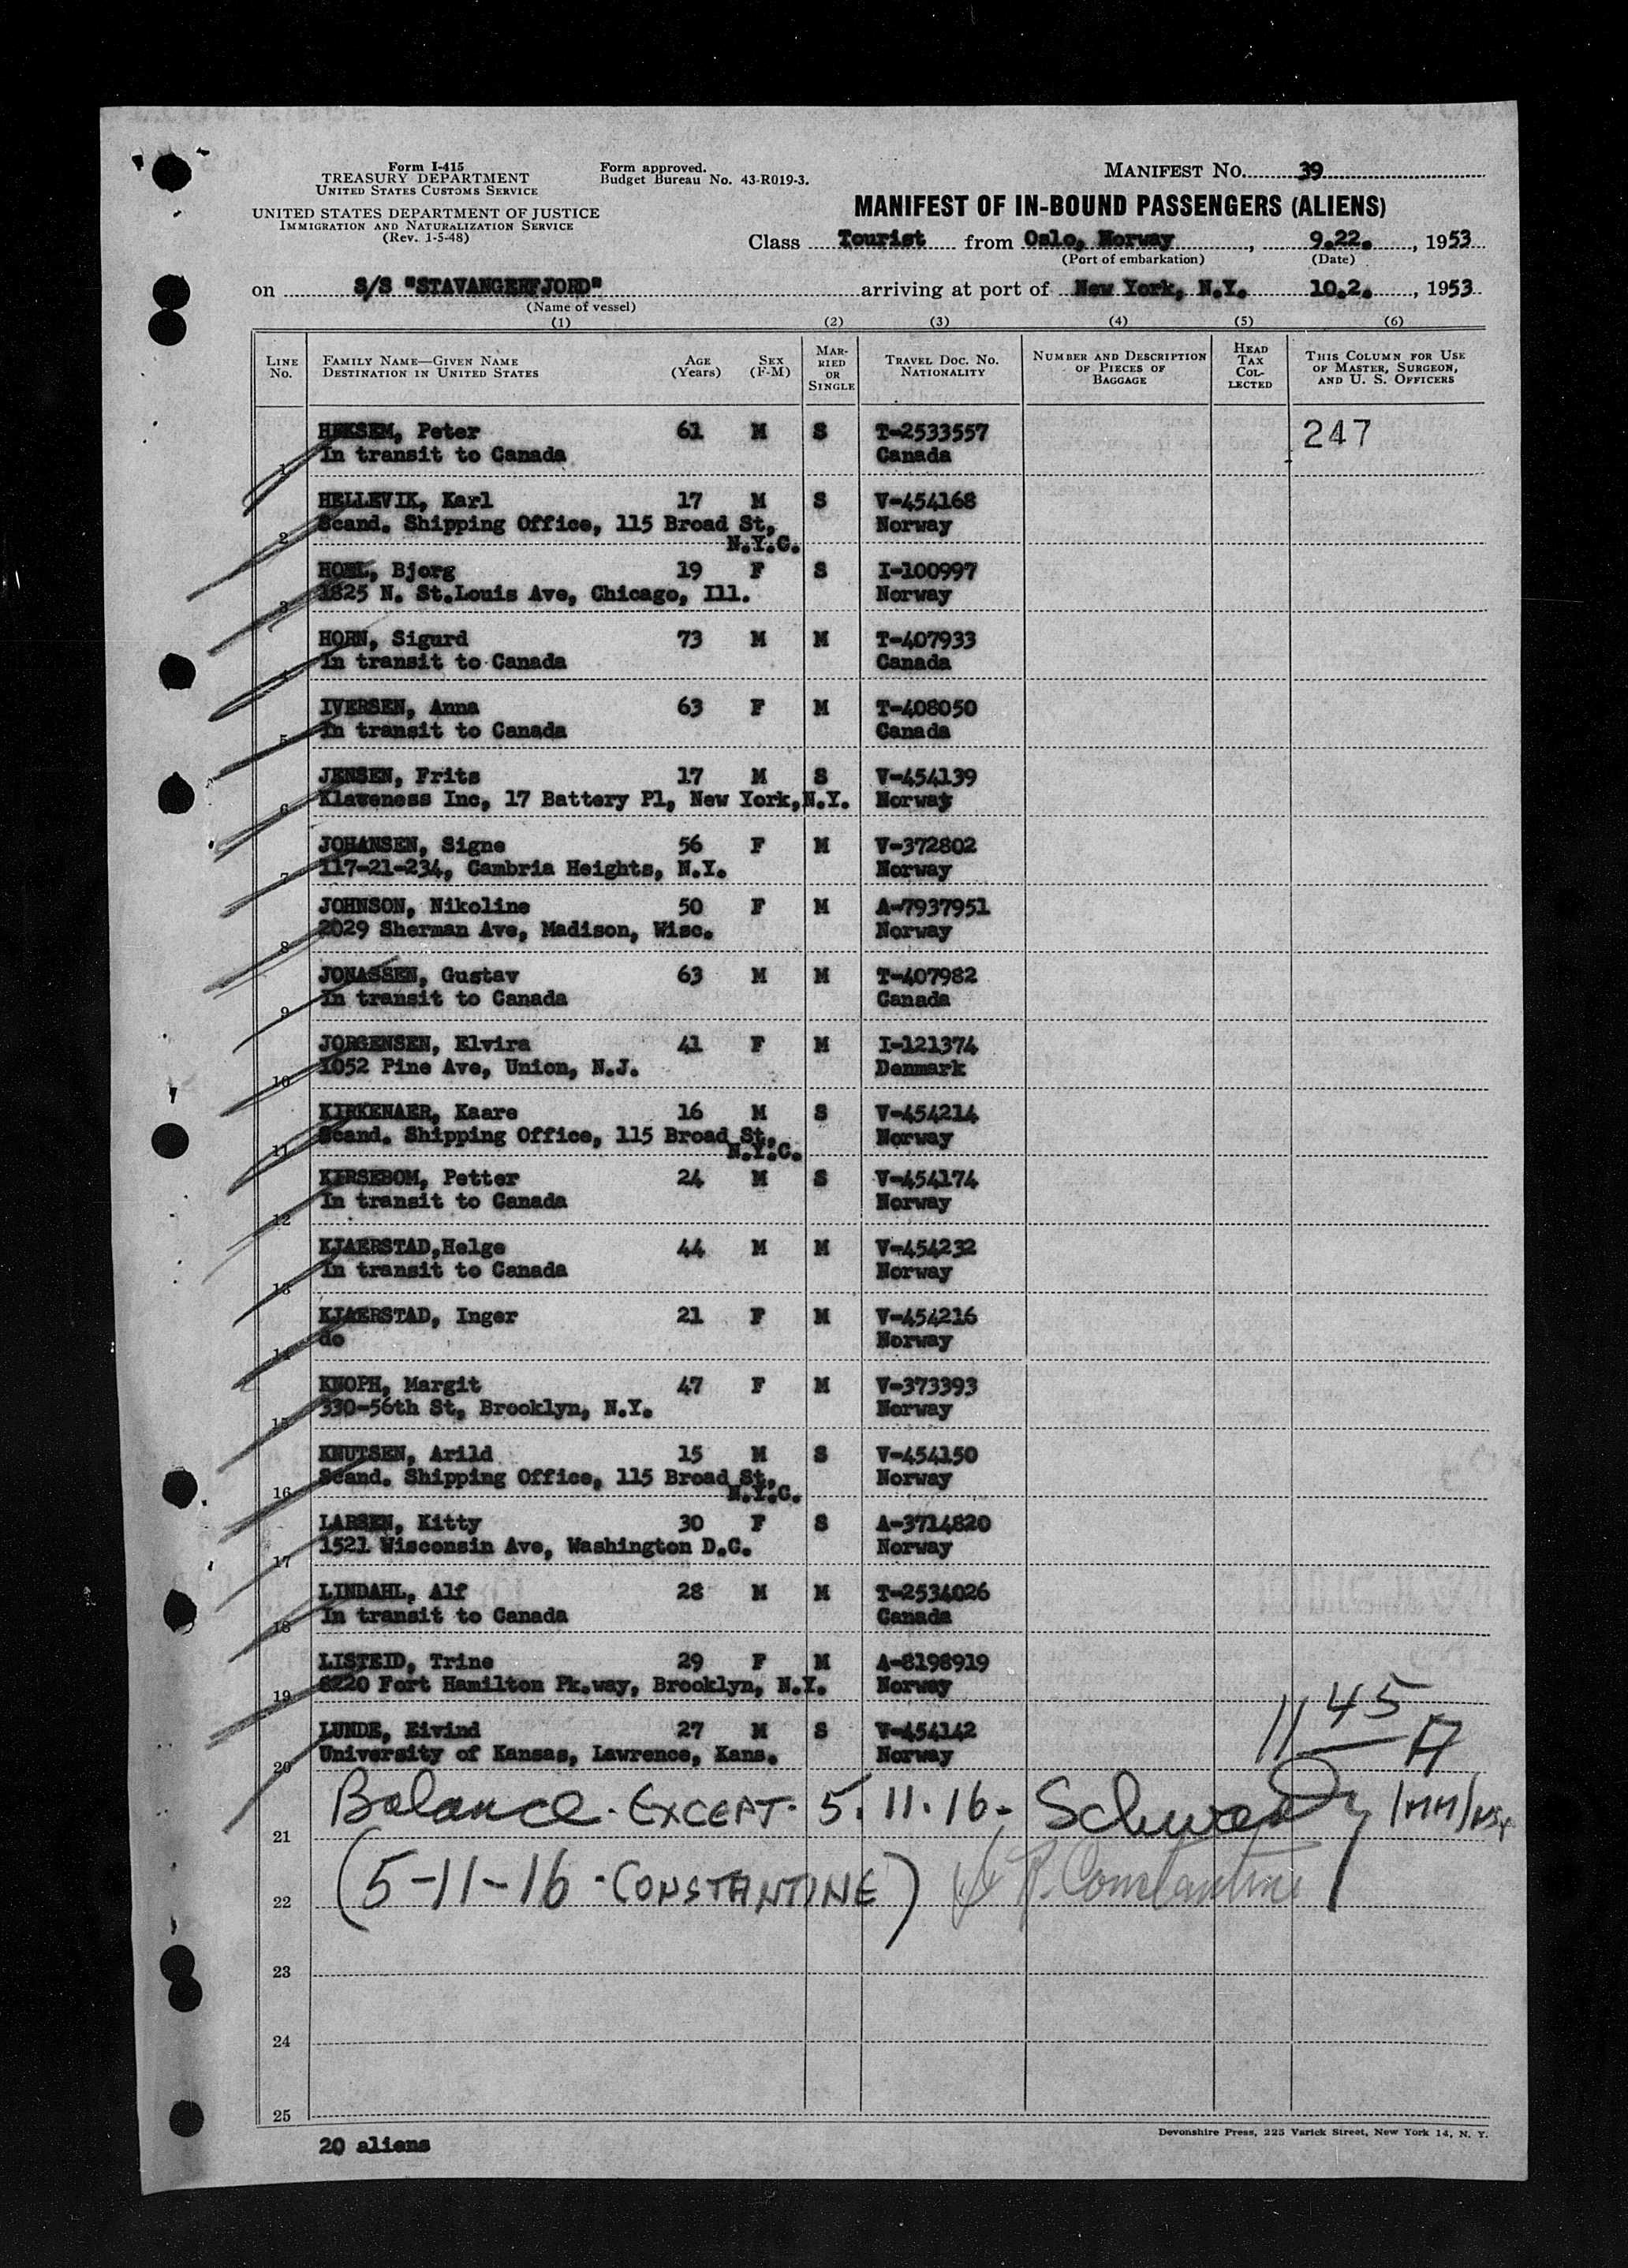 Form I-415
TREASURY DEPARTMENT
UNITED STATES CUSTOMS SERVICE
UNITED STATES DEPARTMENT OF JUSTICE
IMMIGRATION AND NATURALIZATION SERVICE
(Rev. 1-5-48)
Form approved.
Budget Bureau No. 43-R019-3.
MANIFEST No. 39
MANIFEST OF IN-BOUND PASSENGERS (ALIENS)
Class Tourist from Oslo, Norway, 9.22., 1953
(Port of embarkation) (Date)
on S/S "STAVANGERFJORD" arriving at port of New York, N.Y. 10.2., 1953
(Name of vessel)
(1) (2) (3) (4) (5) (6)
LINE No.
FAMILY NAME—GIVEN NAME
DESTINATION IN UNITED STATES
AGE (Years)
SEX (F-M)
MARRIED OR SINGLE
TRAVEL DOC. NO. NATIONALITY
NUMBER AND DESCRIPTION OF PIECES OF BAGGAGE
HEAD TAX COLLECTED
THIS COLUMN FOR USE OF MASTER, SURGEON, AND U. S. OFFICERS
HEKSEM, Peter 61 M S T-2533557 247
1 In transit to Canada Canada
HELLEVIK, Karl 17 M S V-454168
2 Scand. Shipping Office, 115 Broad St, N.Y.C. Norway
HOEL, Bjorg 19 F S I-100997
3 1825 N. St.Louis Ave, Chicago, Ill. Norway
HORN, Sigurd 73 M M T-407933
4 In transit to Canada Canada
IVERSEN, Anna 63 F M T-408050
5 In transit to Canada Canada
JENSEN, Frits 17 M S V-454139
6 Klaveness Inc, 17 Battery Pl, New York,N.Y. Norway
JOHANSEN, Signe 56 F M V-372802
7 117-21-234, Cambria Heights, N.Y. Norway
JOHNSON, Nikoline 50 F M A-7937951
8 2029 Sherman Ave, Madison, Wisc. Norway
JONASSEN, Gustav 63 M M T-407982
9 In transit to Canada Canada
JORGENSEN, Elvira 41 F M I-121374
10 1052 Pine Ave, Union, N.J. Denmark
KIRKENAER, Kaare 16 M S V-454214
11 Scand. Shipping Office, 115 Broad St, N.Y.C. Norway
KIRSEBOM, Petter 24 M S V-454174
12 In transit to Canada Norway
KJAERSTAD,Helge 44 M M V-454232
13 In transit to Canada Norway
KJAERSTAD, Inger 21 F M V-454216
14 do Norway
KNOPH, Margit 47 F M V-373393
15 330-56th St, Brooklyn, N.Y. Norway
KNUTSEN, Arild 15 M S V-454150
16 Scand. Shipping Office, 115 Broad St, N.Y.C. Norway
LARSEN, Kitty 30 F S A-3714820
17 1521 Wisconsin Ave, Washington D.C. Norway
LINDAHL, Alf 28 M M T-2534026
18 In transit to Canada Canada
LISTEID, Trine 29 F M A-8198919
19 8220 Fort Hamilton Pk.way, Brooklyn, N.Y. Norway
LUNDE, Eivind 27 M S V-454142 11 45 A
20 University of Kansas, Lawrence, Kans. Norway
21 Balance - EXCEPT - 5. 11. 16 -
22 (5-11-16 - CONSTANTINE) R. Constantine
23
24
25
20 aliens
Devonshire Press, 225 Varick Street, New York 14, N. Y.